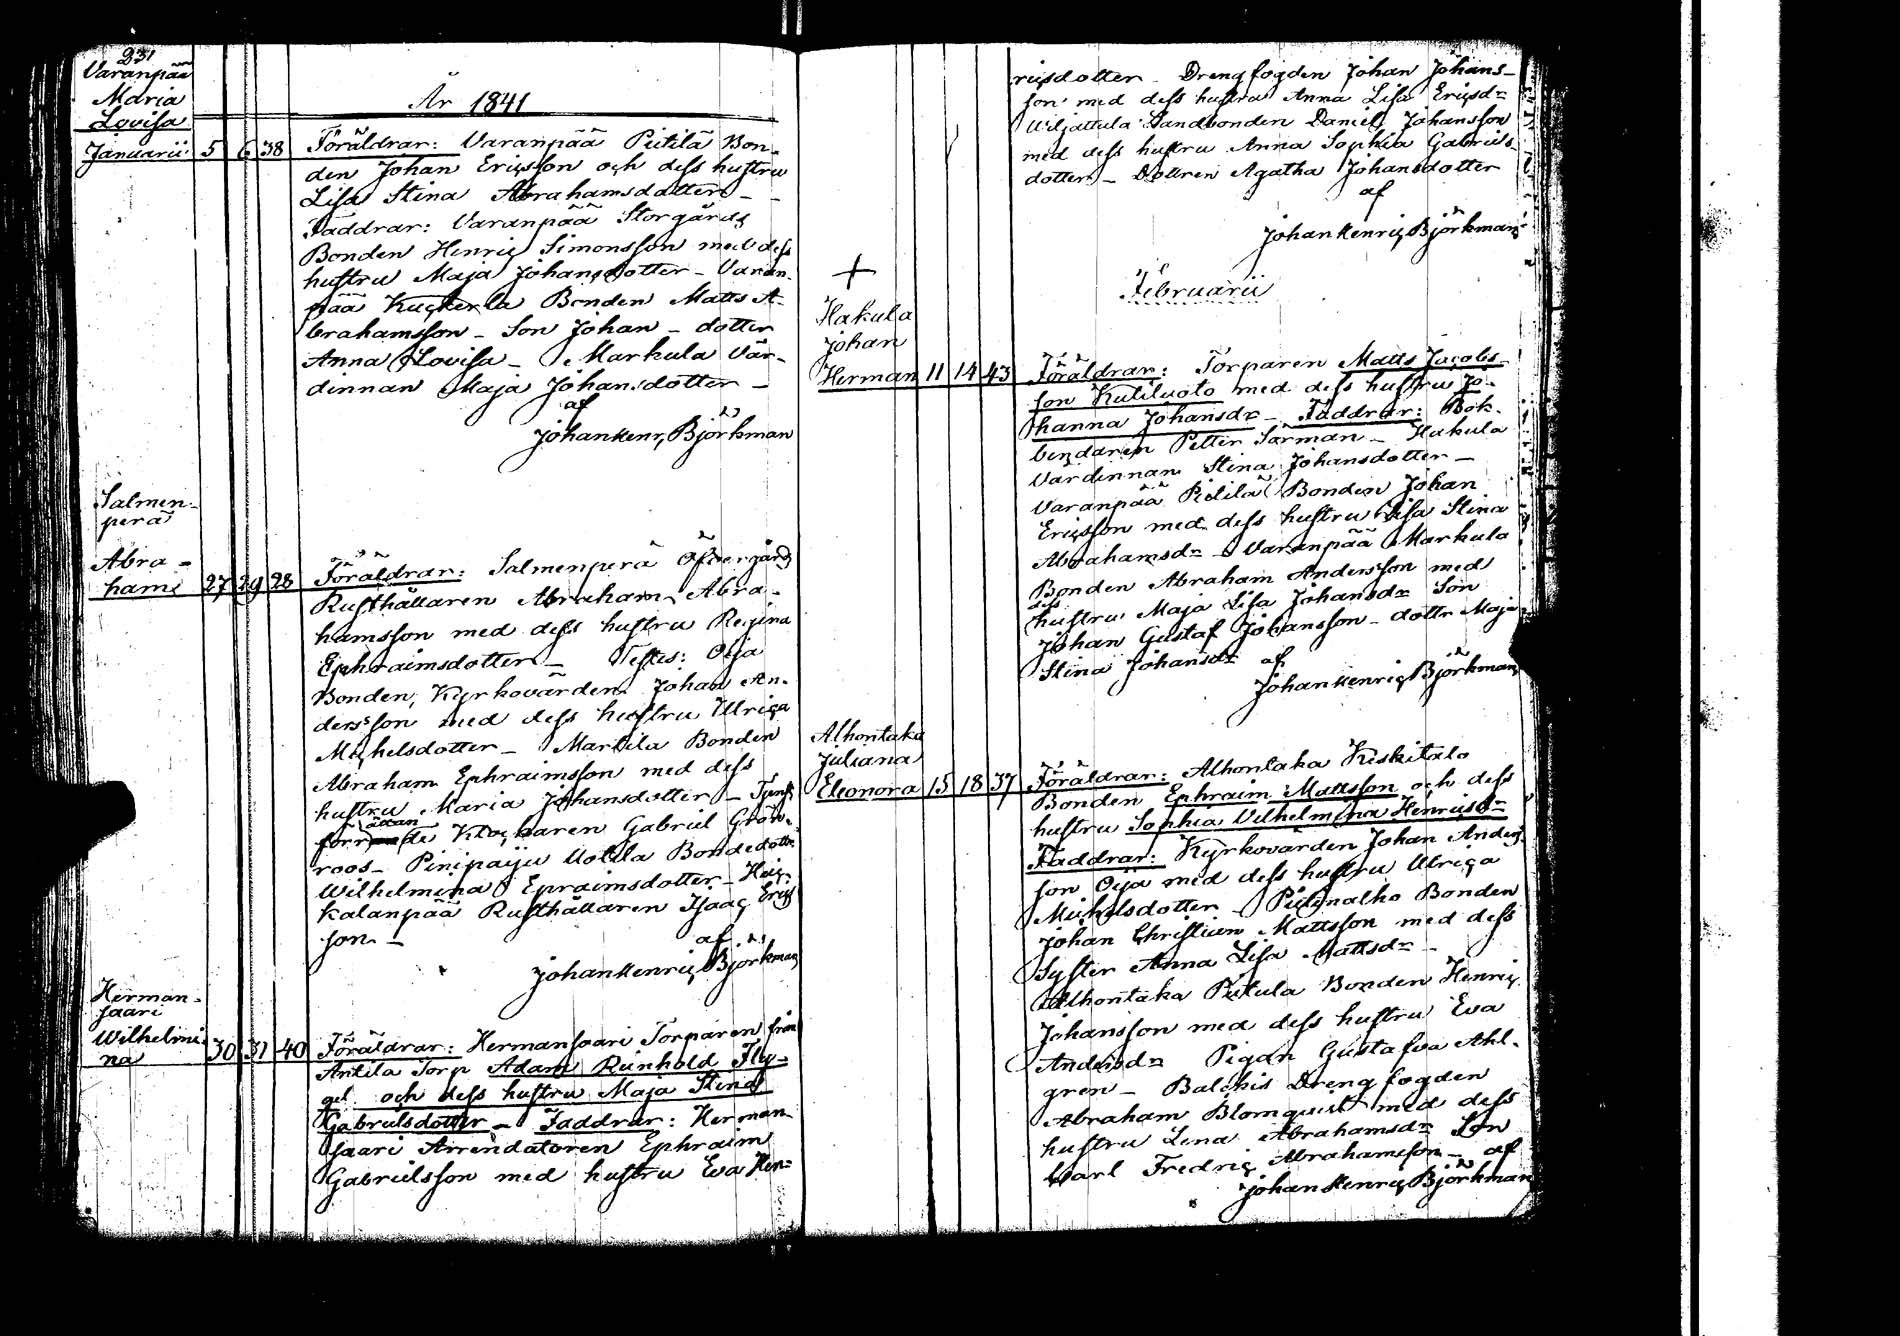 231
Varanpää
Maria
Lovisa
År 1841
Januarii 5 6 38 Föräldrar: Varanpää Pietilä Bon-
den Johan Ericsson och dess hustru
Lisa Stina Abrahamsdotter -
Faddrar: Varanpää Storgårds
Bonden Henric Simonsson med dess
hustru Maja Johansdotter - Varan-
pää Kuckerla Bonden Matts A-
brahamsson - Son Johan - dotter
Anna Lovisa - Markula Vär-
dinnan Maja Johansdotter -
af
Johan Henr, Björkman
Salmen-
perä
Abra-
ham 27 29 28 Föräldrar: Salmenperä Öfvergårds
Rusthållaren Abraham Abra-
hamsson med dess hustru Regina
Ephraimsdotter - Testes: Oija
Bonden, Kyrkovärden Johan An-
dersson med dess hustru Ulrica
Michelsdotter - Martila Bonden
Abraham Ephraimsson med dess
hustru Maria Johansdotter -
rättan
de Klockaren Gabriel Grön-
roos - Pinipaiju Uotila Bondedottr
Wilhelmina Epraimsdotter -
kalanpää Rusthållaren Isaac Erics
son - af
Johan Henric Björkman
Herman-
saari
Wilhelmi-
na 30 31 40 Föräldrar: Hermansaari Torparen från
Antila Torp Adam Reinhold Fly-
gel och dess hustru Maja Stina
Gabrielsdotter - Faddrar: Herman-
saari Arrendatoren Ephraim
Gabrielsson med hustru Eva Hen-
ricsdotter - Drengfogden Johan Johans-
son med dess hustru Anna Lisa Ericsdr
Viljattula Landbonden Daniel Johansson
med dess hustru Anna Sophia Gabriels-
dotter - Dottren Agatha Johansdotter
af
Johan Henric Björkman
Februarii
+
Hakula
Johan
Herman 11 14 43 Föräldrar: Torparen Matts Jacobs-
son Kutiluoto med dess hustru Jo-
hanna Johansdr - Faddrar: Bok-
bindaren Petter Sarman - Hakula
Värdinnan Stina Johansdotter -
Varanpää Pietilä Bonden Johan
Ericsson med dess hustru Lisa Stina
Abrahamsdr - Varanpää Markula
Bonden Abraham Andersson med
dess
hustru Maja Lisa Johansdr Son
Johan Gustaf Johansson - dottr Maja
Stina Johansdr af
Johan Henric Björkman
Alhontaka
Juliana
Eleonora 15 18 37 Föräldrar: Alhontaka Keskitalo
Bonden Ephraim Mattsson och dess
hustru Sophia Vilhelmina Henricsdr
Faddrar: Kyrkovärden Johan Anders
son Oija med dess hustru Ulrica
Michelsdotter - Bonden
Johan Christian Mattsson med dess
Syster Anna Lisa Mattsdr -
Alhontaka Pietula Bonden Henric
Johansson med dess hustru Eva
Andersdr Pigan Gustafva Ahl-
gren - Balckis Drengfogden
Abraham Blomquist med dess
hustru Lena Abrahamsdr Son
Carl Fredric Abrahamsson - af
Johan Henric Björkman